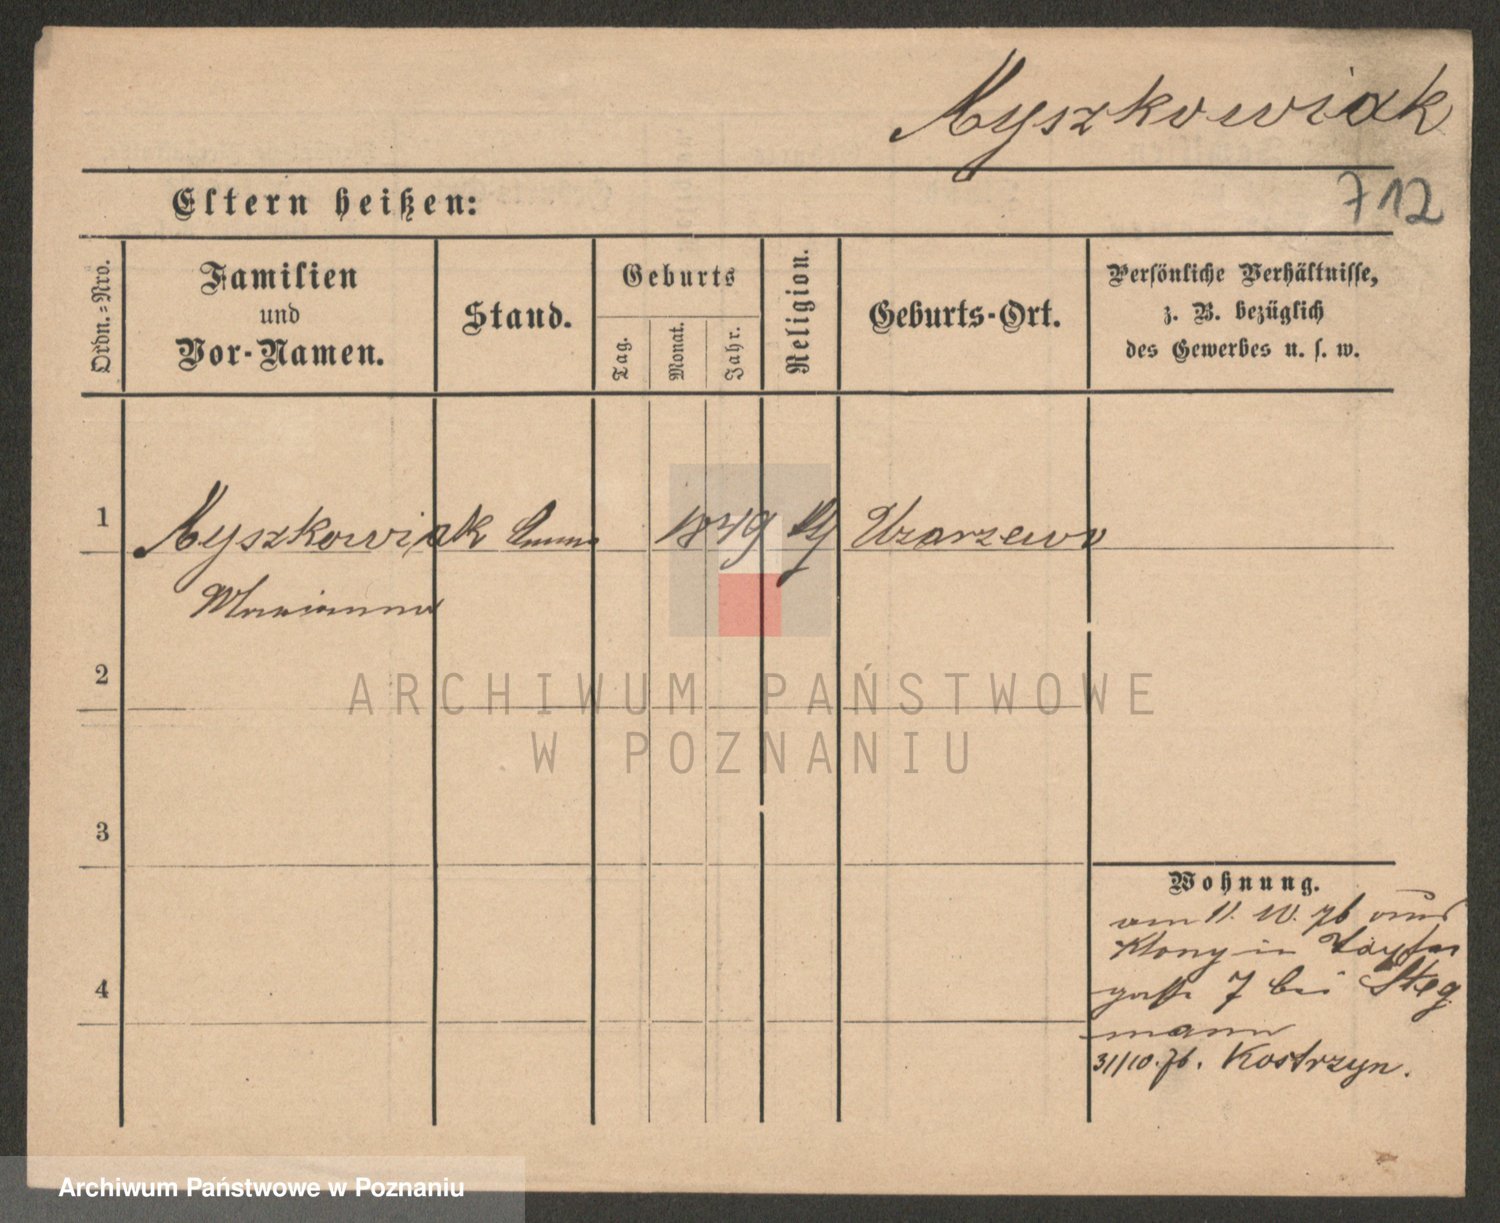 Myszkowiak
712
Eltern heißen:
Ordn.=Nro.
Familien
und
Vor-Namen.
Stand.
Geburts
Tag.
Monat.
Jahr.
Religion.
Geburts-Ort.
Persönliche Verhältnisse,
z. B. bezüglich
des Gewerbes u. s. w.
1 Myszkowiak 1849 Uzarzewo
Marianna
2
ARCHIWUM PAŃSTWOWE
W POZNANIU
3
Wohnung.
vom 11. 10. 76 aus
Klony in
gasse 7 bei Steg
mann
4
31/10. 76. Kostrzyn.
Archiwum Państwowe w Poznaniu